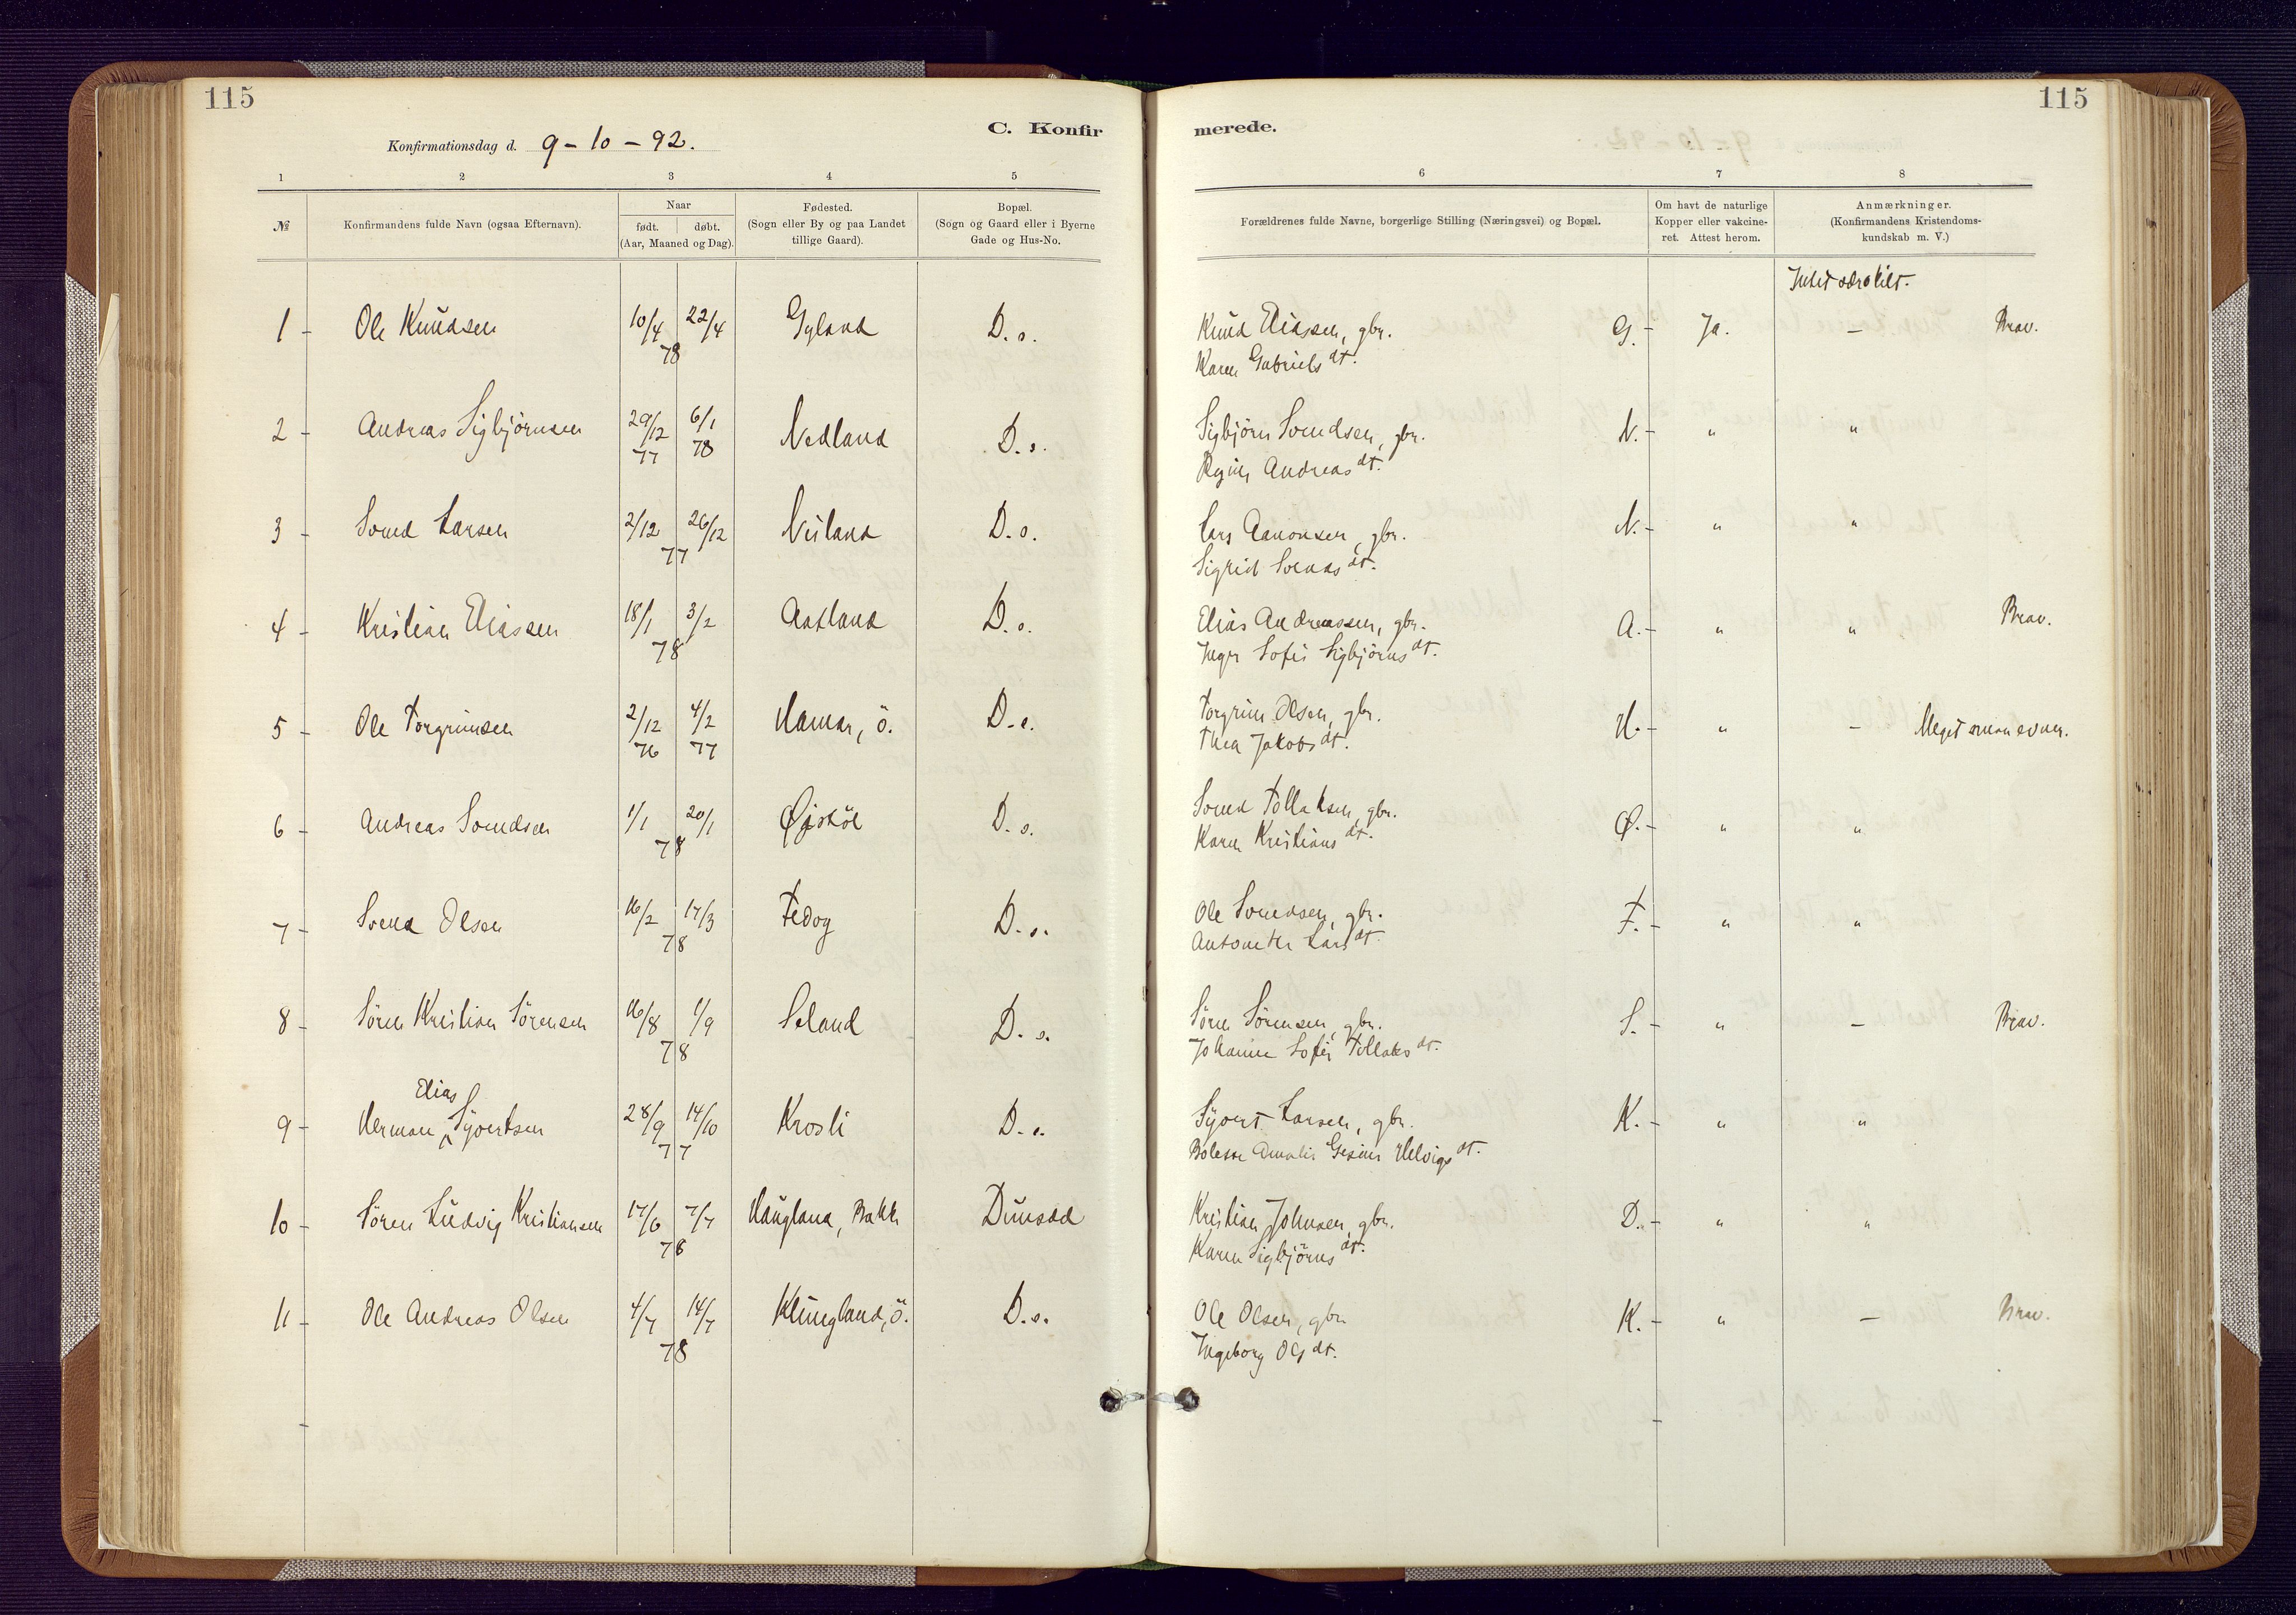 115
C. Konfir
Konfirmationsdag d. 9 - 10 - 92.
1 2 3 4 5
№ Konfirmandens fulde Navn (ogsaa Efternavn). Naar født. døbt. (Aar, Maaned og Dag). Fødested. (Sogn eller By og paa Landet tillige Gaard). Bopæl. (Sogn og Gaard eller i Byerne Gade og Hus-No.
1 - Ole Knudsen 10/4 22/4 78 Gyland D. o.
2 - Andreas Sigbjörnsen 29/12 77 6/1 78 Nedland D. o.
3 - Svend Larsen 2/12 26/12 77 Nuland D. o.
4 - Kristian Eliassen 18/1 3/2 78 D. o.
5 - Ole Torgrimsen 2/12 76 4/2 77 Hamar, ö. D. o.
6 - Andreas Svendsen 1/1 20/1 78 D. o.
7 - Svend Olsen 16/2 17/3 78 Fedog D. o.
8 - Sören Kristian Sörensen 16/8 1/9 78 Seland D. o.
Elias
9 - Herman Syvertsen 28/9 14/10 77 Krosli D. o.
10 - Sören Ludvig Kristiansen 17/6 7/7 78 Haugland, Bakke Dunsæd
11 - Ole Andreas Olsen 4/7 14/7 78 Klungland, ö. D. o.
115
merede.
6 7 8
Forældrenes fulde Navne, borgerlige Stilling (Næringsvei) og Bopæl. Om havt de naturlige Kopper eller vakcineret. Attest herom. Anmærkninger. (Konfirmandens Kristendomskundskab m. V.)
Intet særskilt.
Knud Eliassen, gbr. G. - Ja. - Brav.
Karen Gabriels dt.
Sigbjörn Svendsen, gbr. N. - " "
Regine Andreas dt.
Lars Aanonsen, gbr. N. - " "
Sigrid Svends dt.
Elias Andreassen, gbr. A. - " " Brav.
Inger Sofie Sigbjörns dt.
Torgrim Olsen, gbr. H. - " - Meget smaa evner.
Thea Jakobs dt.
Svend Tollaksen, gbr. Ø. - " "
Karen Kristians dt.
Ole Svendsen, gbr. F. - " "
Antonette Lars dt.
Sören Sörensen, gbr. S. - " - Brav.
Johanne Sofie Tollaks dt.
Syvert Larsen, gbr. K. - " "
Bolette Amalie Gesine Helvigs dt.
Kristian Johnsen, gbr. D. - " "
Karen Sigbjörns dt.
Ole Olsen, gbr. K. - " - Brav.
Ingeborg Ols dt.